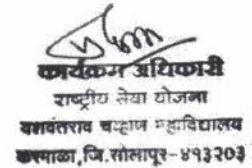 कार्यक्रम अधिकारी
राष्ट्रीय सेवा योजना
यशवंतराव चव्हाण महाविद्यालय
करमाळा, जि.सोलापूर-४१३२०३